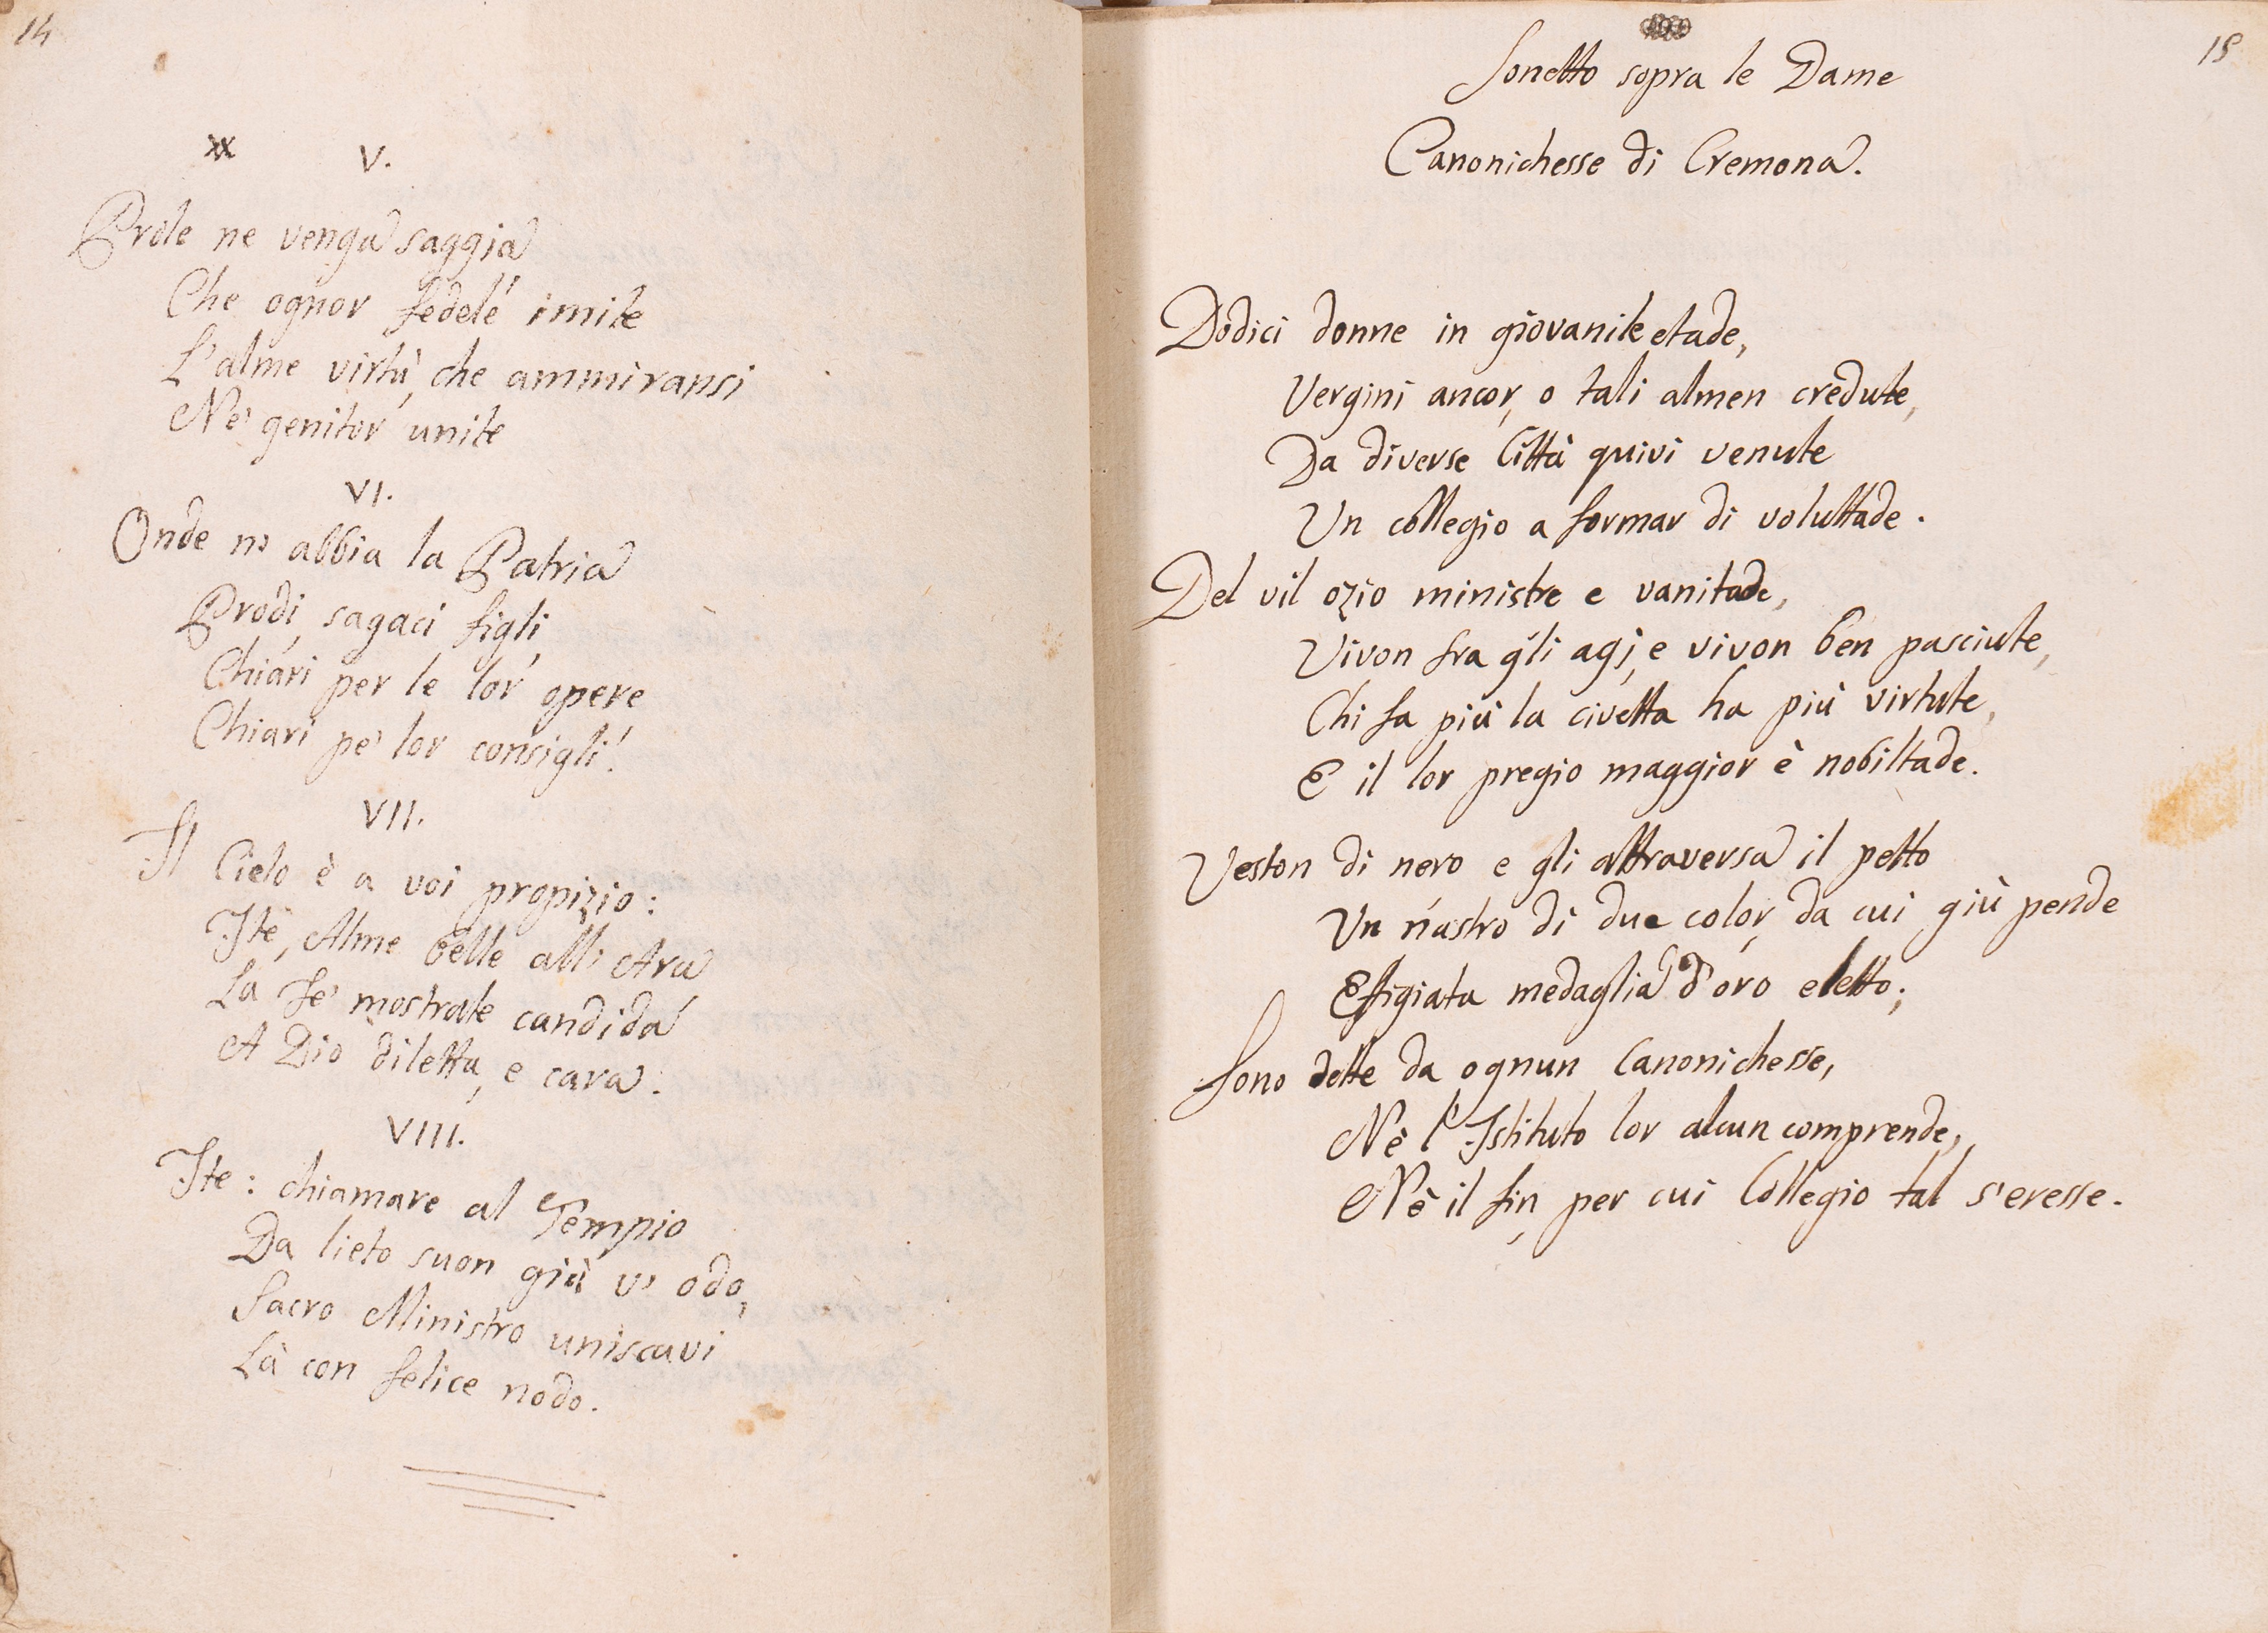 14
V.
Prole ne venga saggia
Che ognor fedele imite
L'alme virtù, che ammiransi
Ne' genitor unite
VI.
Onde n' abbia la Patria
Prodi, sagaci figli,
Chiari per le lor opere
Chiari pe' lor consigli!
VII.
Il Cielo è a voi propizio:
Ite, Alme belle all' Ara
La fe' mostrate candida
A Dio diletta, e cara.
VIII.
Ite: chiamare al Tempio
Da lieto suon già v' odo,
Sacro Ministro uniscavi
Là con felice nodo.
15
Sonetto sopra le Dame
Canonichesse di Cremona.
Dodici donne in giovanile etade,
Vergini ancor, o tali almen credute,
Da diverse Città quivi venute
Un collegio a formar di voluttade.
Del vil ozio ministre e vanitade,
Vivon fra gli agj, e vivon ben pasciute,
Chi fa più la civetta ha più virtute,
E il lor pregio maggior è nobiltade.
Veston di nero e gli attraversa il petto
Un nastro di due color, da cui giù pende
Effigiata medaglia d'oro eletto;
Sono dette da ognun Canonichesse,
Nè l'Istituto lor alcun comprende,
Nè il fin, per cui Collegio tal s'eresse.